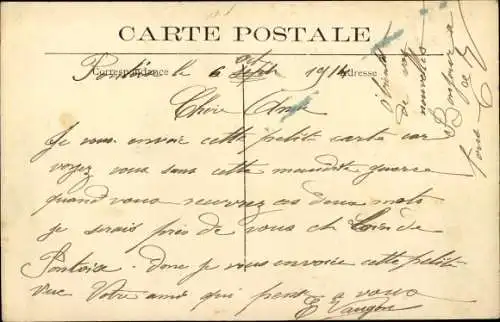 CARTE POSTALE
Correspondance Adresse
le 6 oct 1914
Chère Amie
Je vous envoie cette petit carte car
voyez vous sans cette maudite guerre
quand vous recevrez ces deux mots
je serais près de vous et Loin de
Pontoise. donc je vous envoie cette petit
vue Votre ami qui pense a vous
de vos
nouvelles
Bonjour a
tous